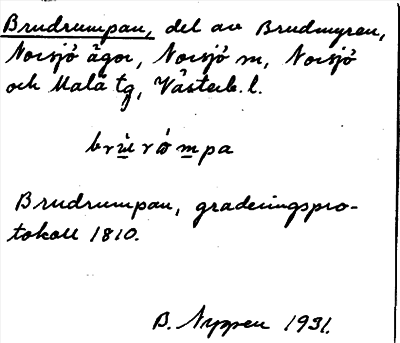 Brudrumpan, del av Brudmyren,
Norsjö ägor, Norsjö sn, Norsjö
och Malå tg, Västerb. l.
Brudrumpan, graderingspro-
tokoll 1810.
B. Nyppen 1931.